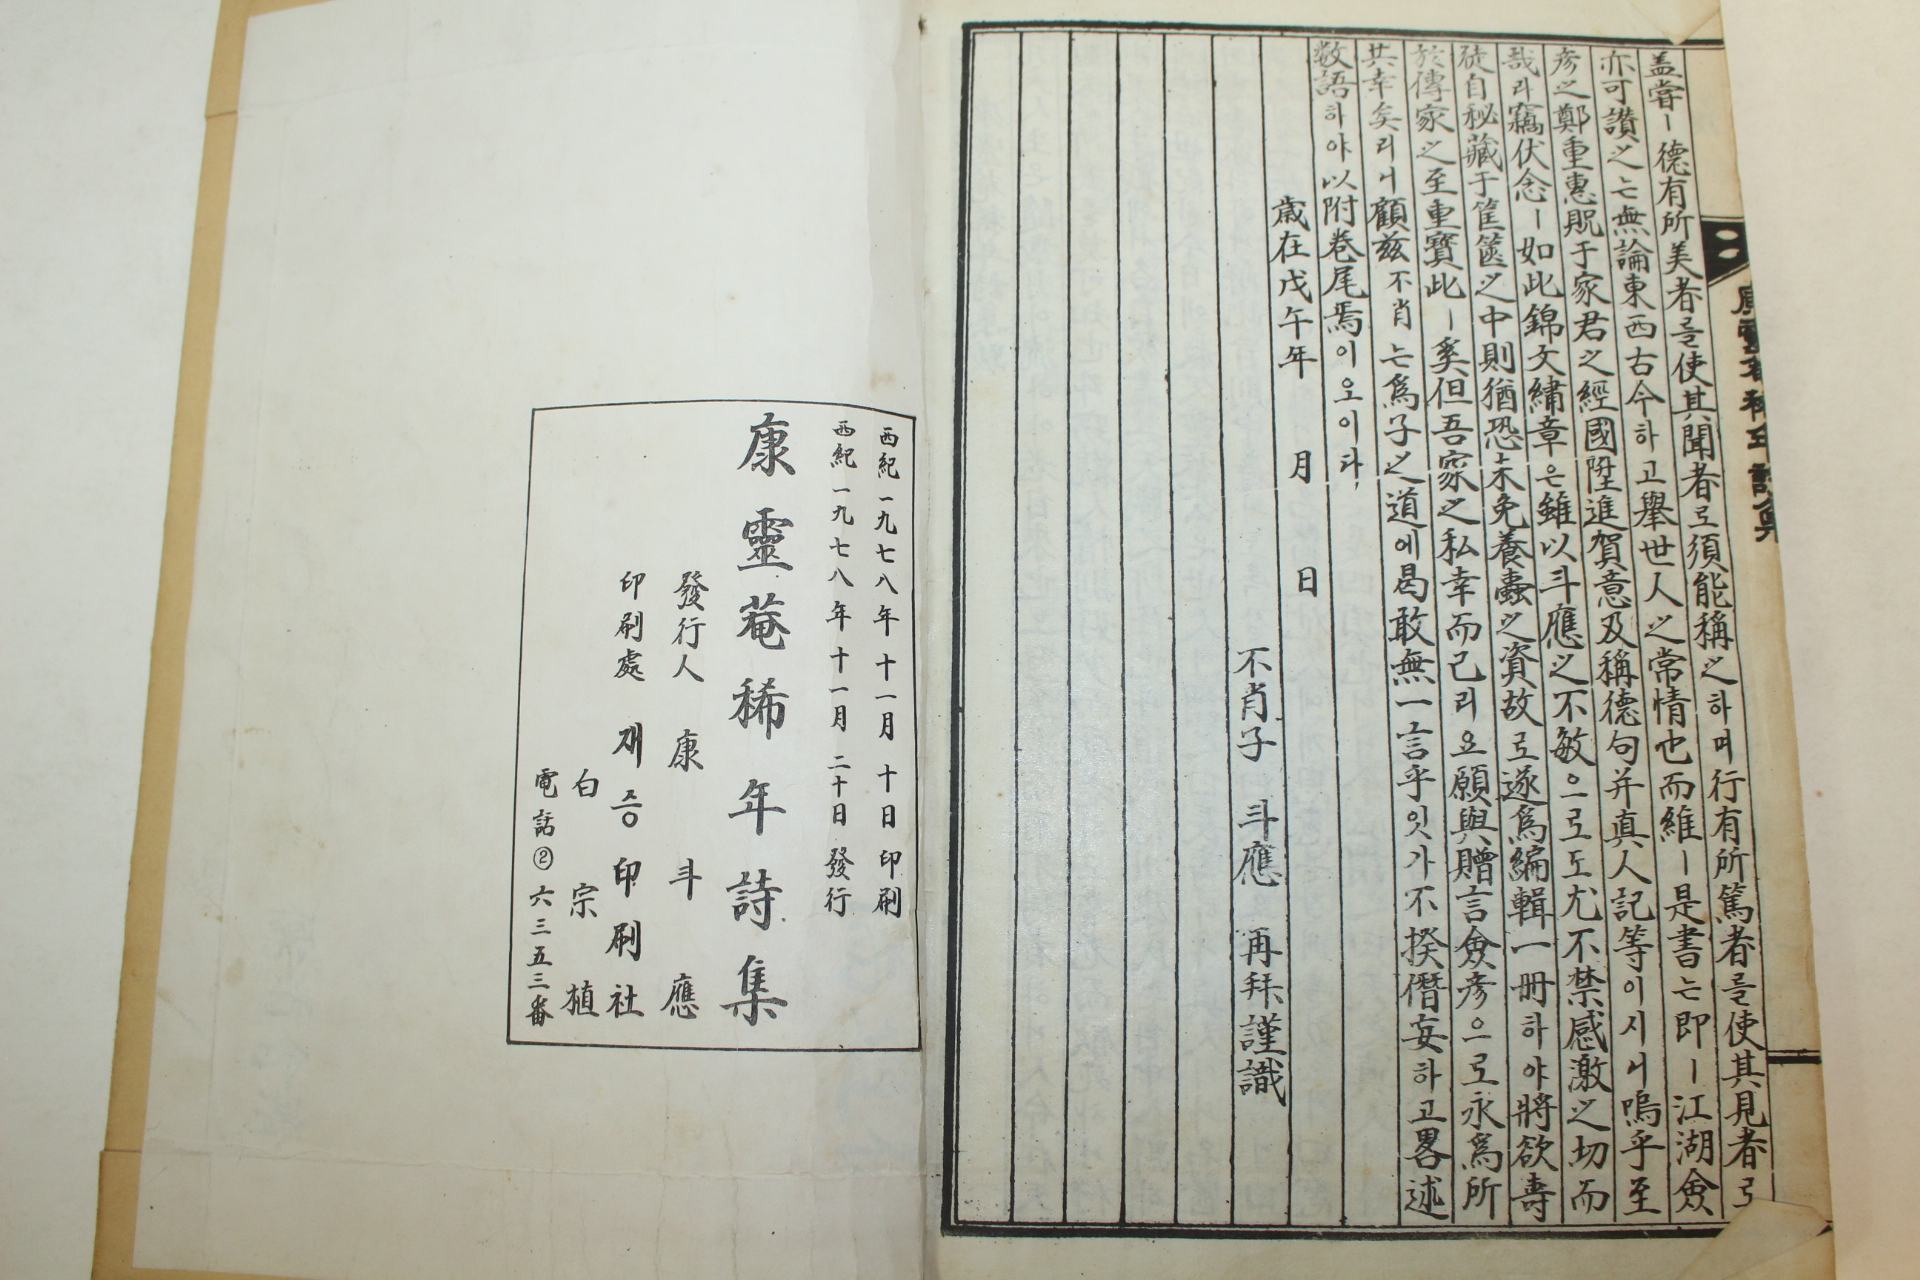 盖嘗ㅣ德有所美者를使其聞者로須能稱之하며行有所篤者를使其見者로
亦可讚之는無論東西古今하고擧世人之常情也而維ㅣ是書는即ㅣ江湖僉
彦之鄭重惠貺于家君之經國陞進賀意及稱德句并真人記等이시니嗚乎至
哉라竊伏念ㅣ如此錦文繡章은雖以斗應之不敏으로도尤不禁感激之切而
徒自秘藏于筐篋之中則猶恐未免養蟲之資故로遂爲編輯一冊하야將欲壽
於傳家之至重寶此ㅣ奚但吾家之私幸而已리요願與贈言僉彦으로永爲所
共幸矣리니顧玆不肖는爲子之道에曷敢無一言乎잇가不揆僭妄하고畧述
数語하야以附卷尾焉이오이다
歲在戊午年 月 日
不肖子 斗應 再拜 謹識
西紀一九七八年十一月十日印刷
西紀一九七八年十一月二十日發行
康靈菴稀年詩集
發行人 康斗應
印刷處 재증印刷社
白宗植
電話②六三五三番